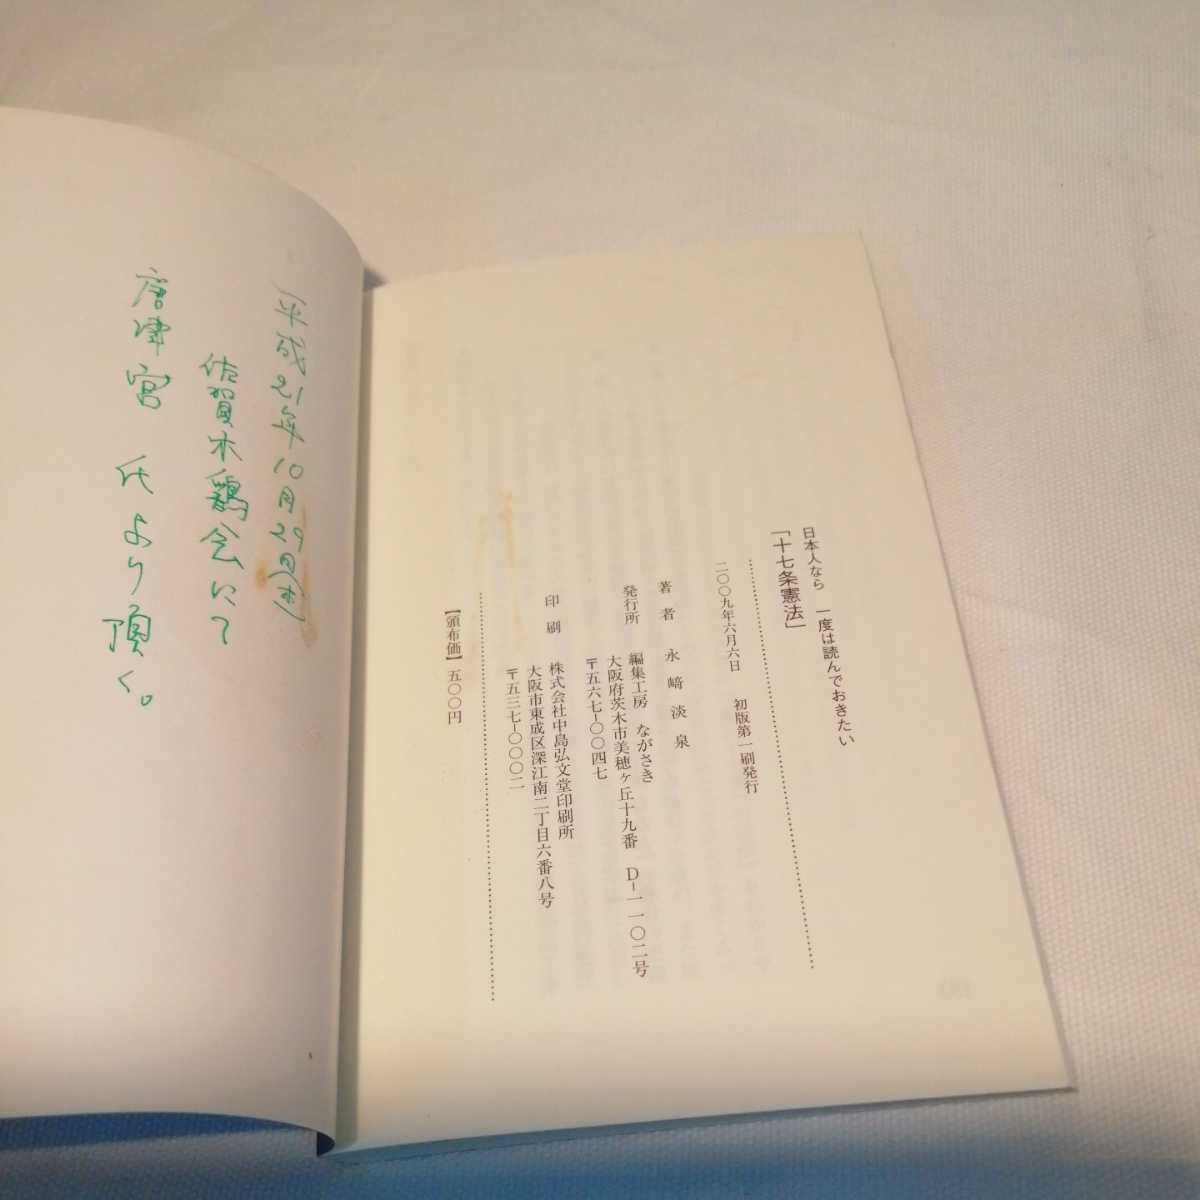 日本人なら 一度は読んでおきたい
「十七条憲法」
二〇〇九年六月六日 初版第一刷発行
著者 永﨑淡泉
発行所 編集工房 ながさき
大阪府茨木市美穂ヶ丘十九番 D-一一〇二号
〒五六七-〇〇四七
印刷 株式会社中島弘文堂印刷所
大阪市東成区深江南二丁目六番八号
〒五三七-〇〇〇二
【頒布価】五〇〇円
(平成21年10月29日(木)
佐賀木鶏会にて
唐津宮 氏より頂く。